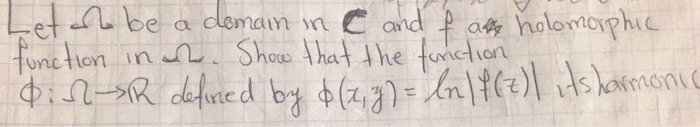 Let Ω be a domain in C and f a holomorphic
function in Ω. Show that the function
Φ: Ω→R defined by ϕ(x,y) = ln|f(z)| its harmonic